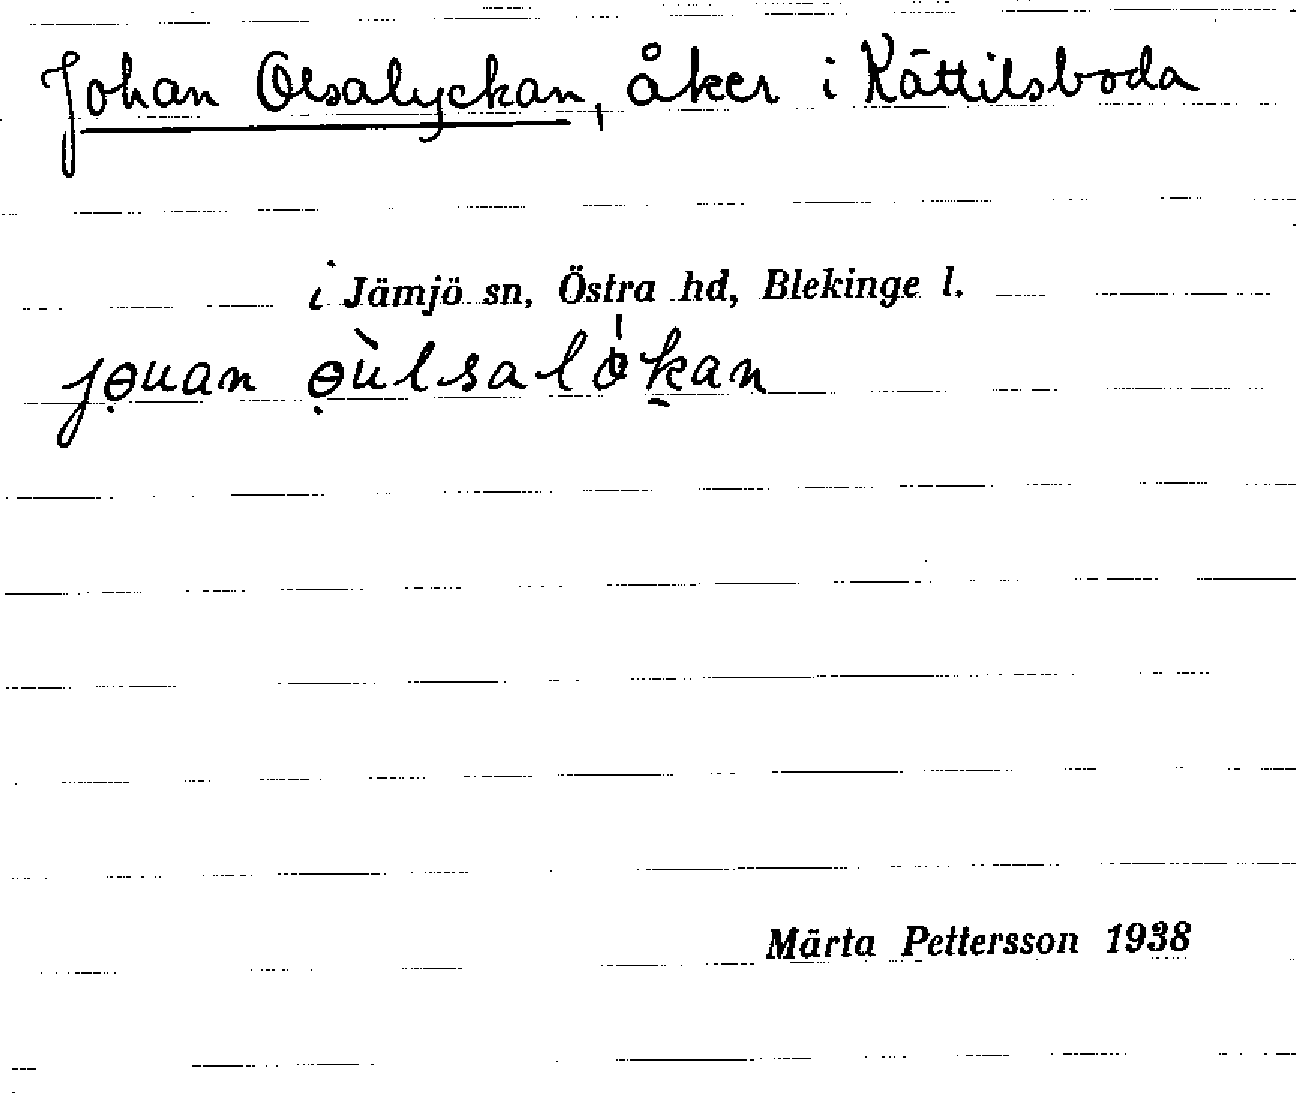 Johan Olsalyckan, åker i Kättilsboda
i Jämjö sn, Östra hd, Blekinge l.
jɵ̣uan ɵ̣̀ulsalókan
Märta Pettersson 1938